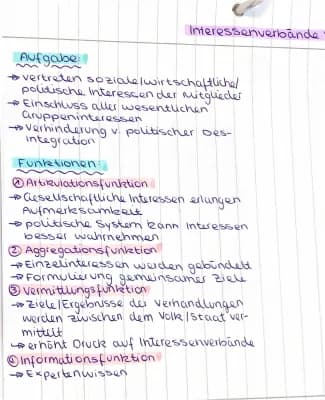 Interessenverbände
Aufgabe:
→ vertreten soziale/wirtschaftliche/
politische Interessen der Mitglieder
→ Einschluss aller wesentlichen
Gruppeninteressen
→ Verhinderung v. politischer Des-
integration
Funktionen:
① Artikulationsfunktion
→ Gesellschaftliche Interessen erlangen
Aufmerksamkeit
→ politische System kann Interessen
besser wahrnehmen
② Aggregationsfunktion
→ Einzelinteressen werden gebündelt
→ Formulierung gemeinsamer Ziele
③ Vermittlungsfunktion
→ Ziele/Ergebnisse der Verhandlungen
werden zwischen dem Volk/Staat ver-
mittelt
→ erhöht Druck auf Interessenverbände
④ Informationsfunktion
→ Expertenwissen